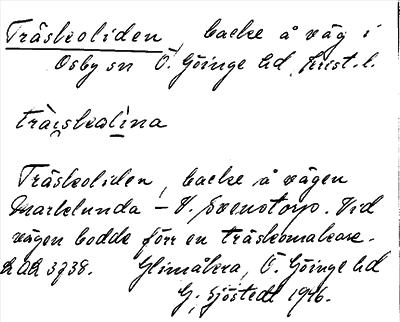 Träskoliden, backe å väg i
Osby sn Ö. Göinge hd, Krist. l.
träiskalina
Träskoliden, backe å vägen
Marklunda - V. Svenstorp. Vid
vägen bodde förr en träskomakare.
LAA 3738. Glimåkra, Ö. Göinge hd
G. Sjöstedt 1946.